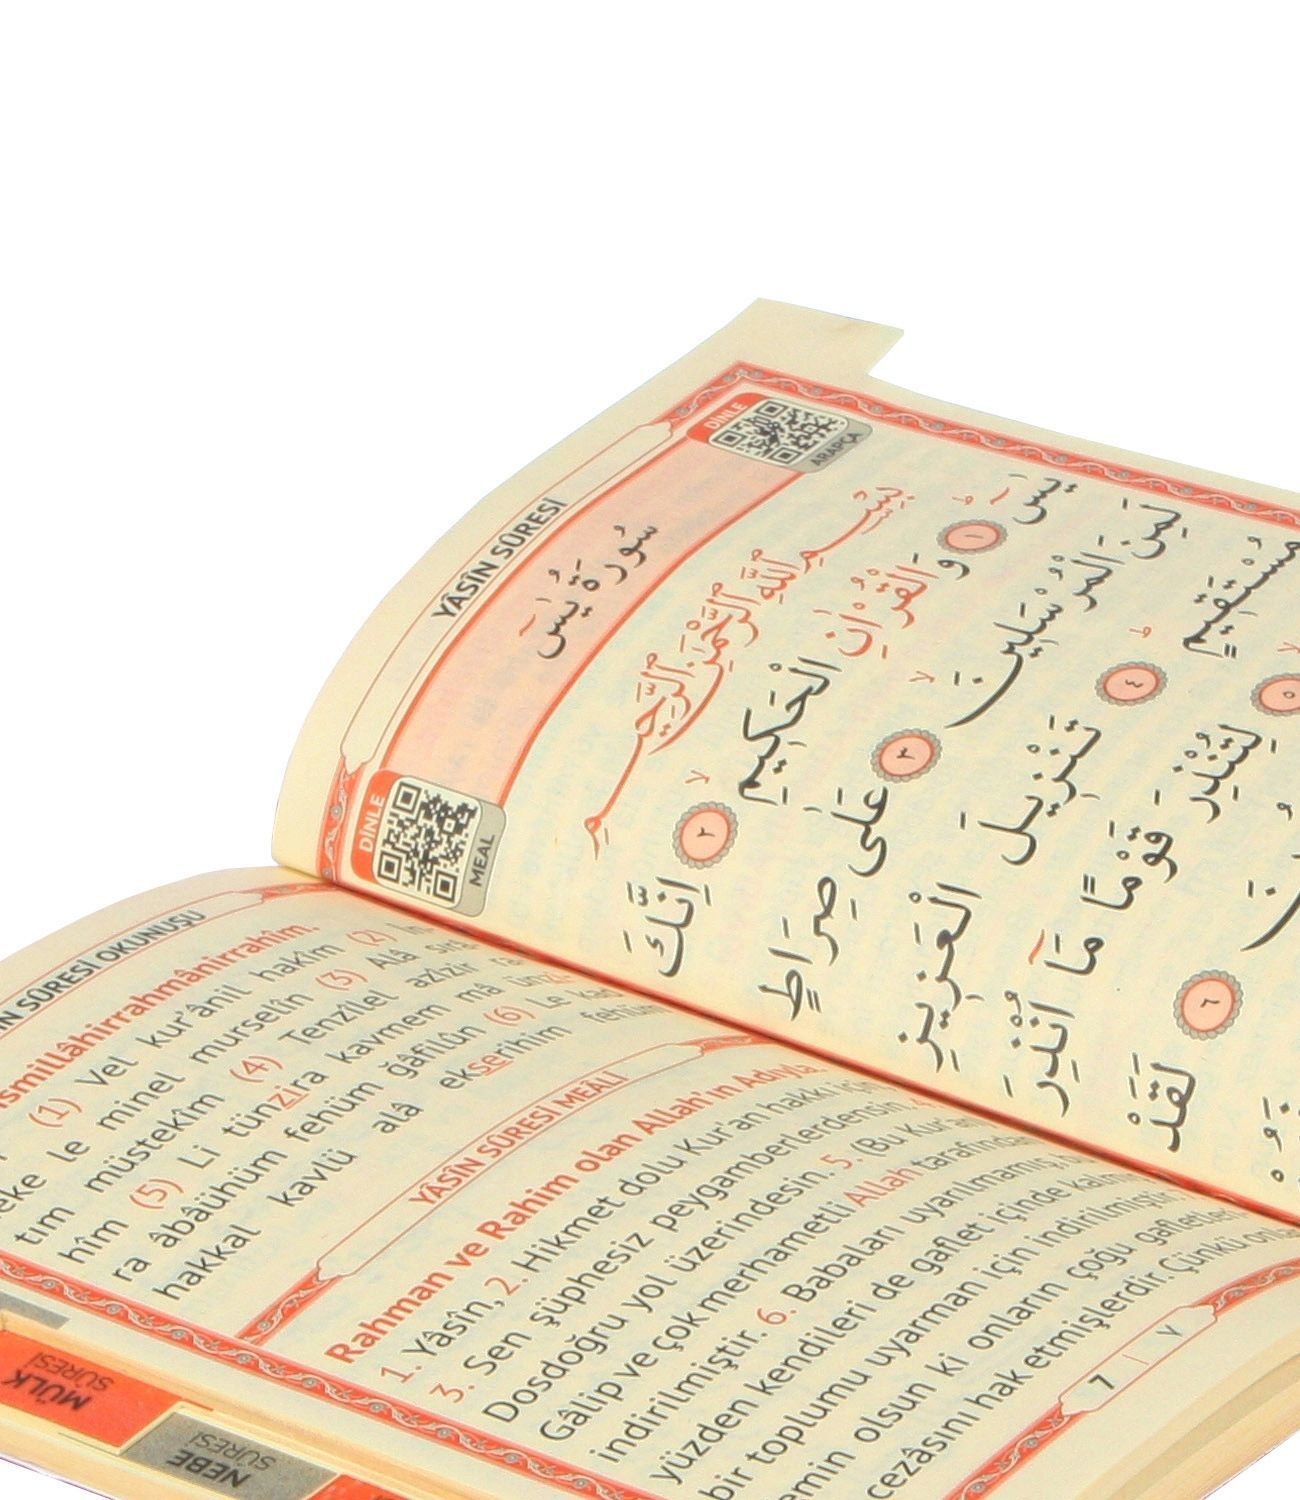 YÂSÎN SÛRESİ
DİNLE
ARAPÇA
سُورَةُ يٰسٓ
DİNLE
MEAL
بِسْمِ اللّٰهِ الرَّحْمٰنِ الرَّحِيمِ
يٰسٓ ۚ ١ وَالْقُرْاٰنِ الْحَكِيمِ ۙ ٢ اِنَّكَ
لَمِنَ الْمُرْسَلِينَ ۙ ٣ عَلٰى صِرَاطٍ
مُسْتَقِيمٍ ۜ ٤ تَنْزِيلَ الْعَزِيزِ
٥ لِتُنْذِرَ قَوْمًا مَٓا اُنْذِرَ
٦ لَقَدْ
SÛRESİ OKUNUŞU
(1) Vel kur'ânil hakîm (2) İn
le minel murselîn (3) Alâ
tım müstekîm (4) Tenzîlel azîzir
hîm (5) Li tünzira kavmem mâ
ra âbâühüm fehüm ğâfilûn (6) Le
hakkal kavlü alâ ekserihim
YÂSÎN SÛRESİ MEÂLİ
Rahman ve Rahim olan Allah'ın Adıyla.
1. Yâsîn, 2. Hikmet dolu Kur'an hakkı için
3. Sen şüphesiz peygamberlerdensin.
Dosdoğru yol üzerindesin. 5. (Bu Kur'an
Gâlip ve çok merhametli Allah tarafından
indirilmiştir. 6. Babaları uyarılmamış,
yüzden kendileri de gaflet içinde
bir toplumu uyarman için indirilmiştir.
emin olsun ki onların çoğu
cezâsını hak etmişlerdir. Çünkü
7 | ٧
MÜLK
SÛRESİ
NEBE
SÛRESİ